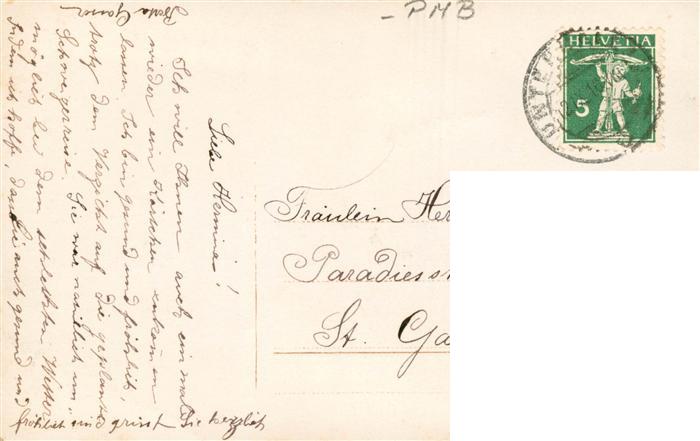 - PMB
HELVETIA
5
Liebe Hermine!
Ich will Ihnen auch ein mal
wieder ein Kärtchen
lassen. Ich bin gesund und fröhlich,
trotz dem Verzicht auf die geplante
Schweizerreise. Sie war nämlich un-
möglich bei dem schlechten Wetter.
Indem ich hoffe, dass Sie auch gesund und
fröhlich sind grüsst Sie herzlich
Berta
Fräulein Her
Paradiesst
St. Ga